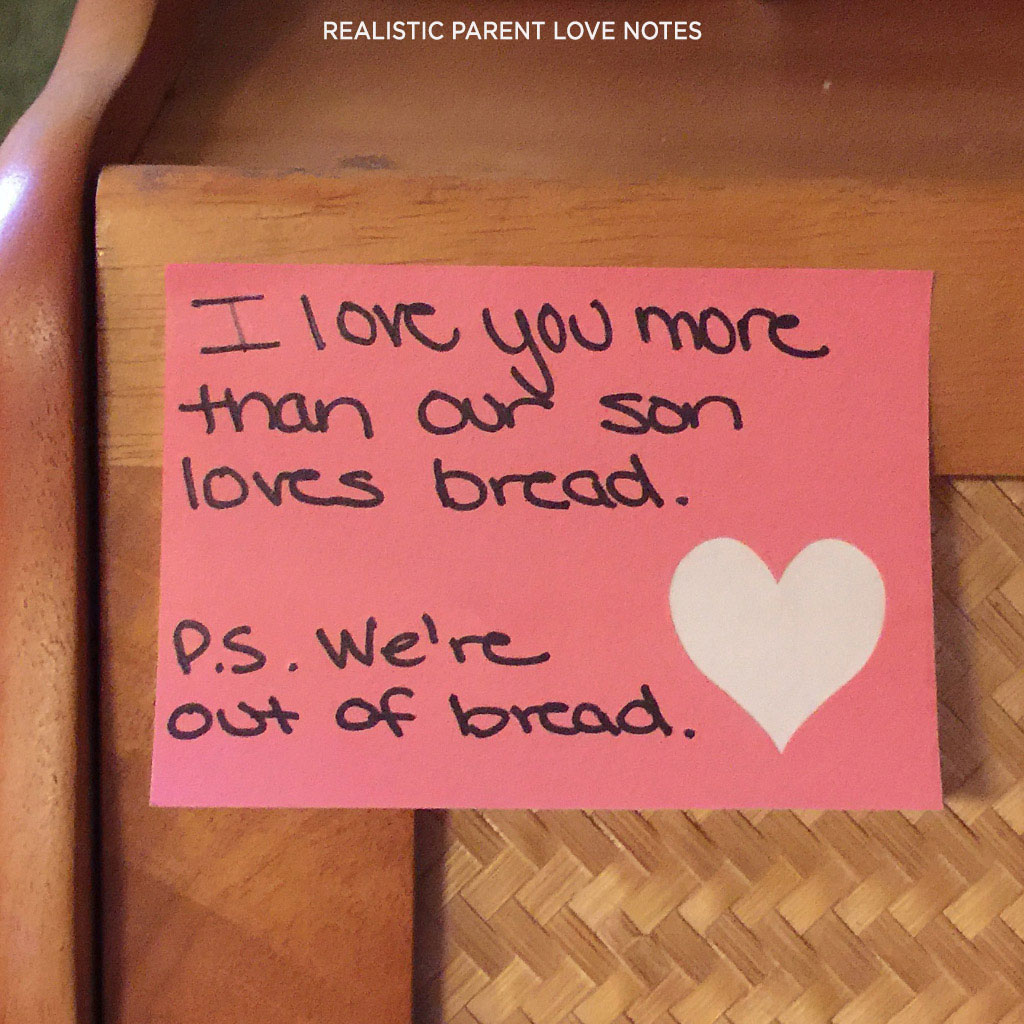 REALISTIC PARENT LOVE NOTES
I love you more
than our son
loves bread.
P.S. We're
out of bread.